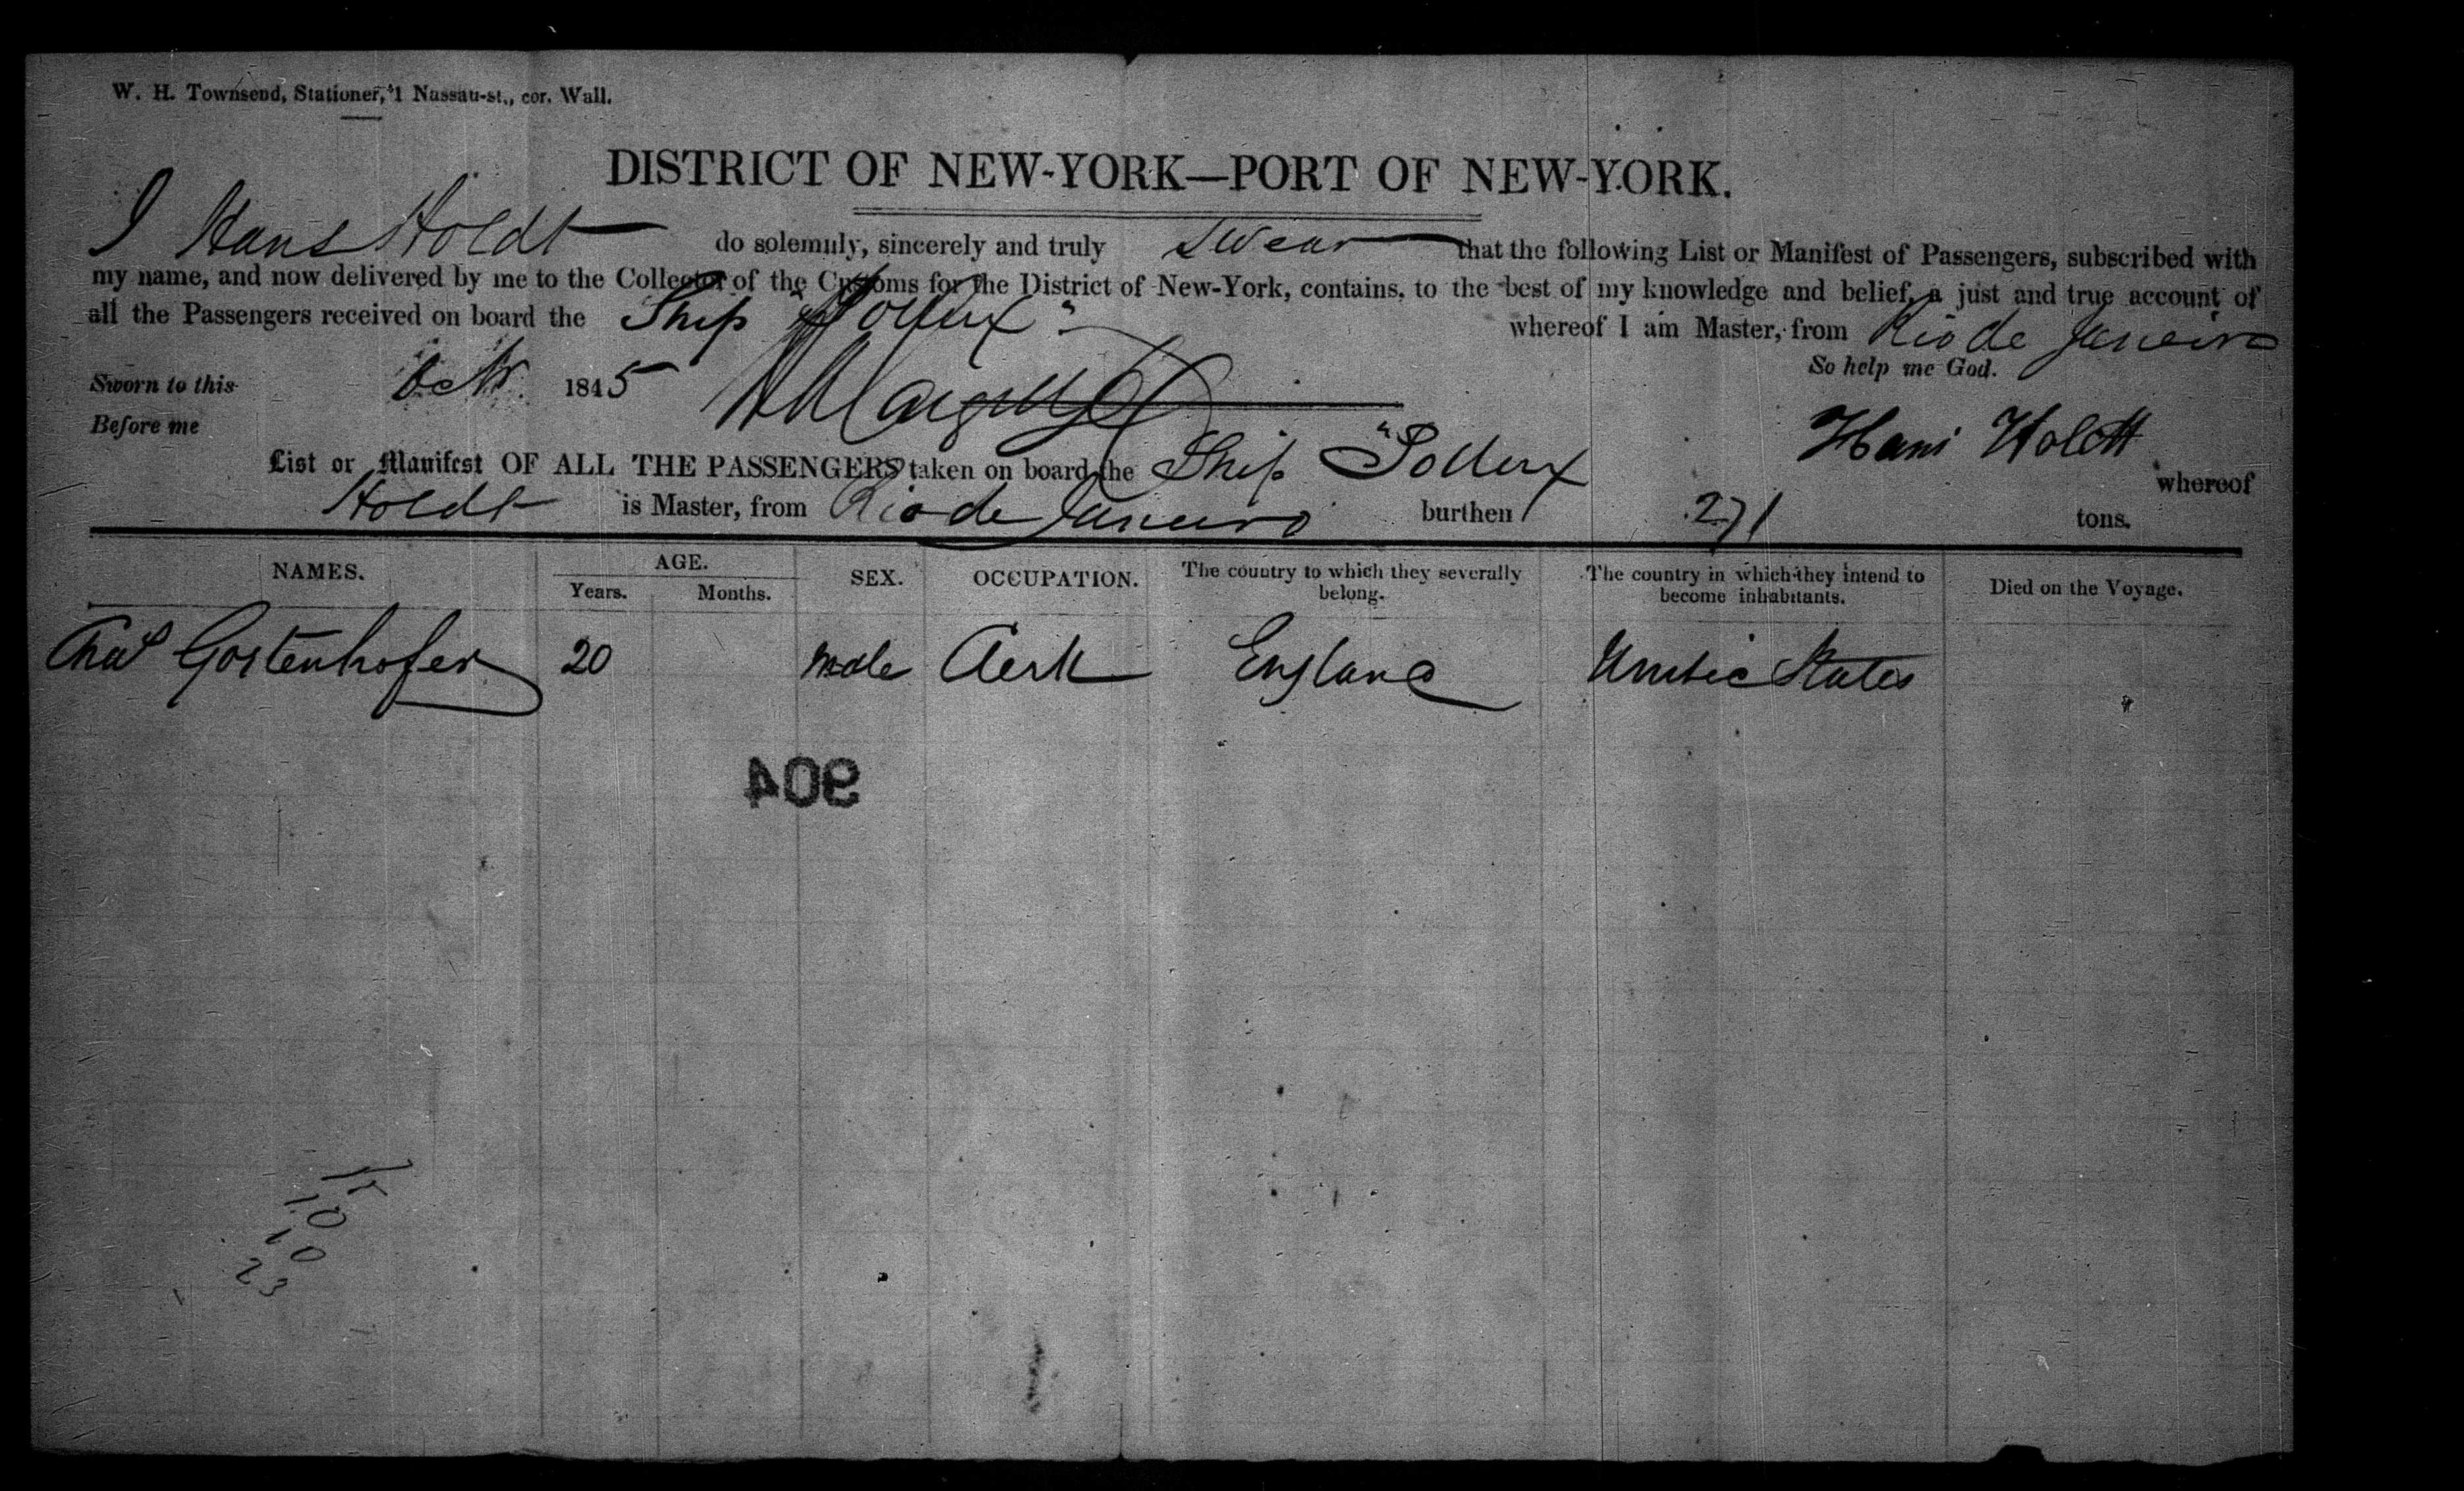 W. H. Townsend, Stationer, 1 Nassau-st., cor. Wall.
DISTRICT OF NEW-YORK—PORT OF NEW-YORK.
I Hans Holdt do solemnly, sincerely and truly swear that the following List or Manifest of Passengers, subscribed with
my name, and now delivered by me to the Collector of the Customs for the District of New-York, contains, to the best of my knowledge and belief, a just and true account of
all the Passengers received on board the Ship "Pollux" whereof I am Master, from Rio de Janeiro
So help me God.
Sworn to this Octr. 1845
Before me
Hans Holdt
List or Manifest OF ALL THE PASSENGERS taken on board the Ship "Pollux whereof
Holdt is Master, from Rio de Janeiro burthen 271 tons.
NAMES. AGE. SEX. OCCUPATION. The country to which they severally belong. The country in which they intend to become inhabitants. Died on the Voyage.
Years. Months.
Chas Gostenhofer 20 male Clerk England United States
904
10
10
23